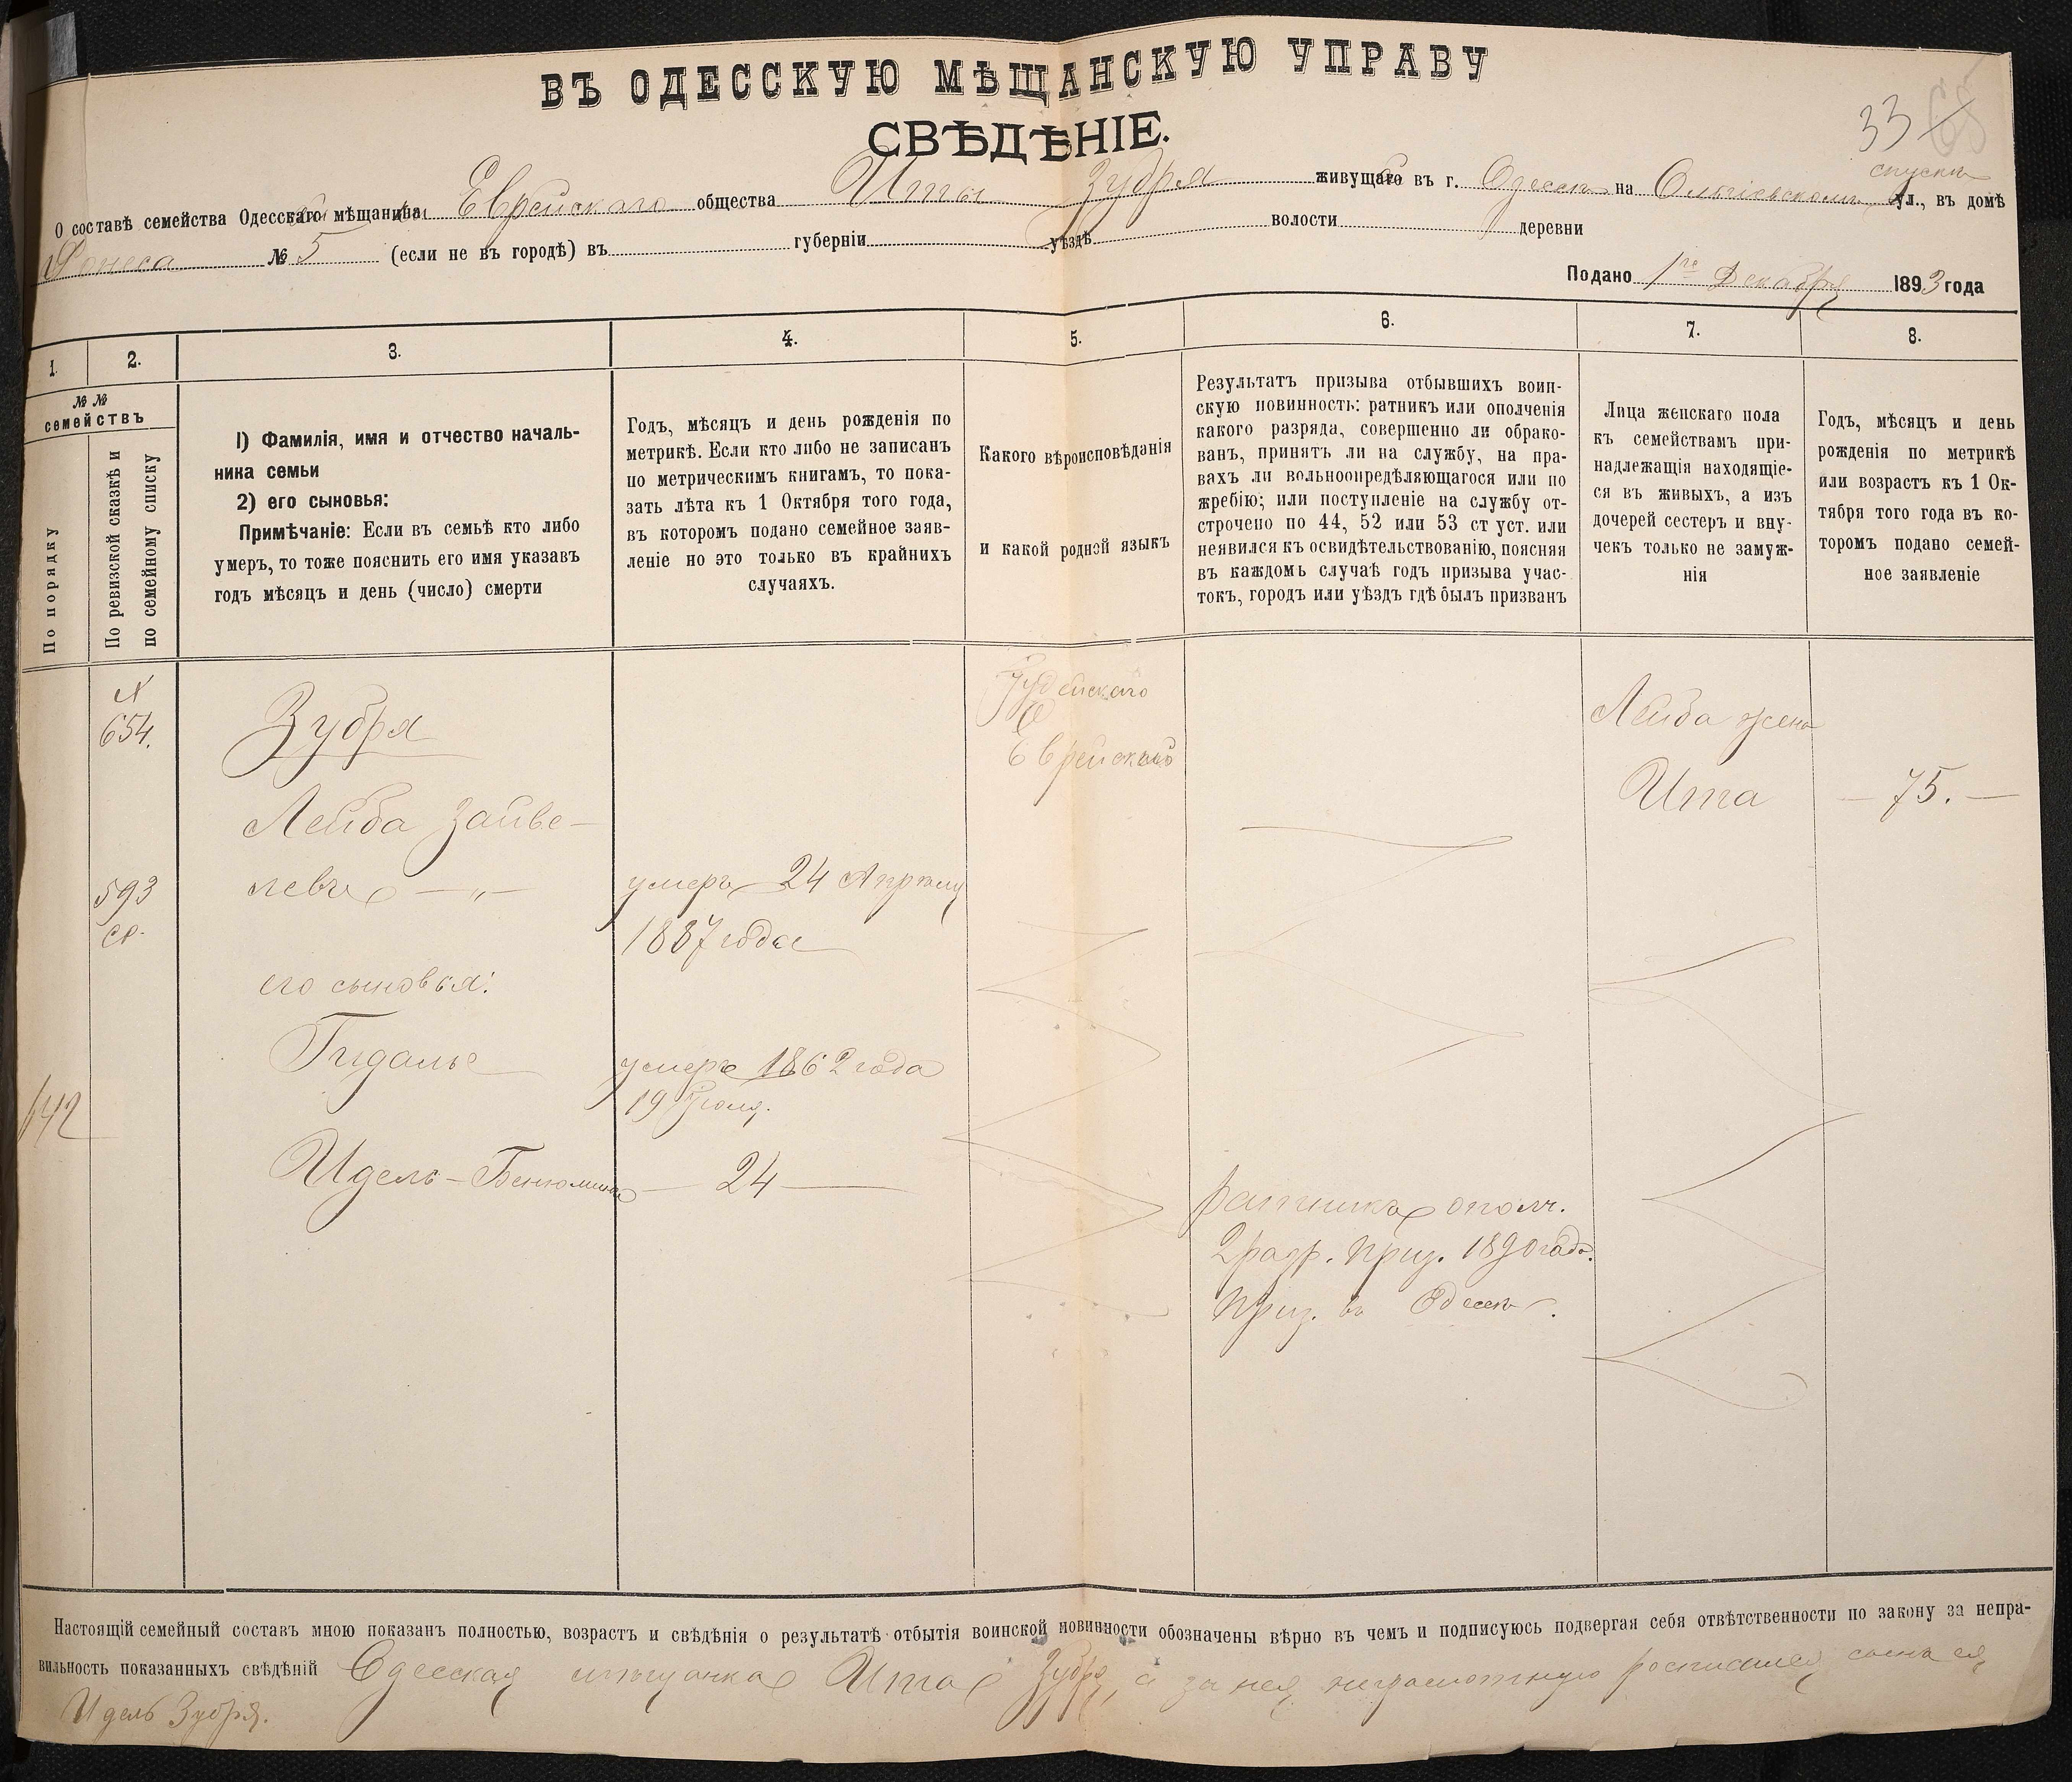 ВЪ ОДЕССКУЮ МѢЩАНСКУЮ УПРАВУ
СВѢДѢНІЕ.
33
68
спускъ
О составѣ семейства Одесскаго мѣщанина Еврейскаго общества Иты Зубря живущаго въ г. Одессѣ на Ольгіевскомъ ул., въ домѣ
№ 5 (если не въ городѣ) въ губерніи уѣздѣ волости деревни
Подано 1го Декабря 1893 года
1. 2. 3. 4. 5. 6. 7. 8.
№ №
семействъ
По порядку
По ревизской сказкѣ и
по семейному списку
1) Фамилія, имя и отчество началь-
ника семьи
2) его сыновья:
Примѣчаніе: Если въ семьѣ кто либо
умеръ, то тоже пояснить его имя указавъ
годъ мѣсяцъ и день (число) смерти
Годъ, мѣсяцъ и день рожденія по
метрикѣ. Если кто либо не записанъ
по метрическимъ книгамъ, то пока-
зать лѣта къ 1 Октября того года,
въ которомъ подано семейное заяв-
леніе но это только въ крайнихъ
случаяхъ.
Какого вѣроисповѣданія
и какой родной языкъ
Результатъ призыва отбывшихъ воин-
скую повинность: ратникъ или ополченія
какого разряда, совершенно ли обрако-
ванъ, принятъ ли на службу, на пра-
вахъ ли вольноопредѣляющагося или по
жребію; или поступленіе на службу от-
строчено по 44, 52 или 53 ст уст. или
неявился къ освидѣтельствованію, поясняя
въ каждомъ случаѣ годъ призыва учас-
токъ, городъ или уѣздъ гдѣ былъ призванъ
Лица женскаго пола
къ семействамъ при-
надлежащія находящіе-
ся въ живыхъ, а изъ
дочерей сестеръ и вну-
чекъ только не замуж-
нія
Годъ, мѣсяцъ и день
рожденія по метрикѣ
или возрастъ къ 1 Ок-
тября того года въ ко-
торомъ подано семей-
ное заявленіе
N
654.
Зубря
Іудейскаго
Еврейскій
Лейба жена
Ита — 75. —
Лейба Зайве-
левъ — „ —
умеръ 24 Апрѣля
1887 года
593
ср.
его сыновья:
Гидаль
умеръ 1862 года
19 Іюля.
142
Идель-Бенюминъ — 24 —
ратникъ ополч.
2 разр. приз. 1890 года.
Приз. въ Одессѣ.
Настоящій семейный составъ мною показанъ полностью, возрастъ и свѣдѣнія о результатѣ отбытія воинской повинности обозначены вѣрно въ чемъ и подписуюсь подвергая себя отвѣтственности по закону за непра-
вильность показанныхъ свѣдѣній Одесская мѣщанка Ита Зубря, а за нея, неграмотную росписался сынъ ея,
Идель Зубря.